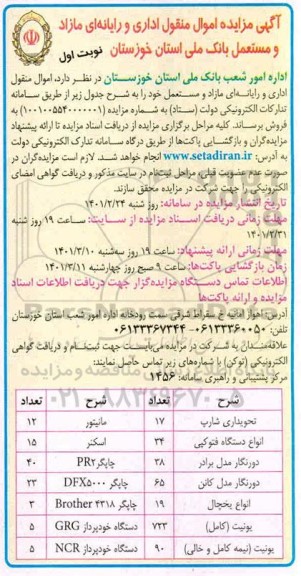 آگهی مزایده اموال منقول اداری و رایانه‌ای مازاد
و مستعمل بانک ملی استان خوزستان
نوبت اول
اداره امور شعب بانک ملی استان خوزستان در نظر دارد، اموال منقول
اداری و رایانه‌ای مازاد و مستعمل خود را به شرح جدول زیر از طریق سامانه
تدارکات الکترونیکی دولت (ستاد) به شماره مزایده (۱۰۰۱۰۰۵۵۴۰۰۰۰۰۱) به
فروش برساند. کلیه مراحل برگزاری مزایده از دریافت اسناد مزایده تا ارائه پیشنهاد
مزایده‌گران و بازگشایی پاکت‌ها از طریق درگاه سامانه تدارک الکترونیکی دولت
به آدرس: www.setadiran.ir انجام خواهد شد. لازم است مزایده‌گران در
صورت عدم عضویت قبلی، مراحل ثبت‌نام در سایت مذکور و دریافت گواهی امضای
الکترونیکی را جهت شرکت در مزایده محقق سازند.
تاریخ انتشار مزایده در سامانه: روز شنبه ۱۴۰۱/۲/۲۴
مهلت زمانی دریافت اسناد مزایده از سایت: ساعت ۱۹ روز شنبه
۱۴۰۱/۲/۳۱
مهلت زمانی ارائه پیشنهاد: ساعت ۱۹ روز سه‌شنبه ۱۴۰۱/۳/۱۰
زمان بازگشایی پاکت‌ها: ساعت ۹ صبح روز چهارشنبه ۱۴۰۱/۳/۱۱
اطلاعات تماس دستگاه مزایده‌گزار جهت دریافت اطلاعات اسناد
مزایده و ارائه پاکت‌ها
آدرس: اهواز امانیه خ سقراط شرقی سمت رودخانه اداره امور شعب استان خوزستان
تلفن: ۰۶۱۳۳۳۶۰۰۵۰ - ۰۶۱۳۳۳۶۷۳۴۴
علاقه‌مندان به شرکت در مزایده می‌بایست جهت ثبت‌نام و دریافت گواهی
الکترونیکی (توکن) با شماره‌های زیر تماس حاصل نمایند:
مرکز پشتیبانی و راهبری سامانه: ۱۴۵۶
شرح تعداد شرح تعداد
تحویداری شارپ ۱۷ مانیتور ۱۲
انواع دستگاه فتوکپی ۳۴ اسکنر ۱۵
دورنگار مدل برادر ۳۸ چاپگر PR2 ۴۰
دورنگار مدل کانن ۶۵ چاپگر DFX5000 ۲۳
انواع یخچال ۱۹ چاپگر Brother ۴۳۱۸ ۳
یونیت (کامل) ۷۲۳ دستگاه خودپرداز GRG ۵
یونیت (نیمه کامل و خالی) ۹۰ دستگاه خودپرداز NCR ۵